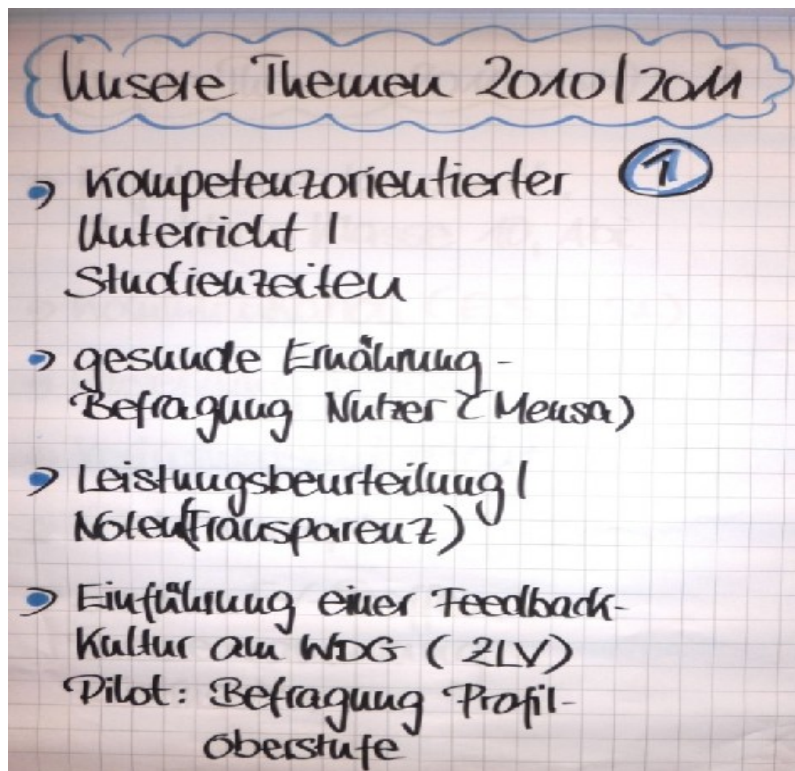 Unsere Themen 2010/2011
1
Kompetenzorientierter
Unterricht /
Studienzeiten
gesunde Ernährung -
Befragung Nutzer (Mensa)
Leistungsbeurteilung /
Noten(Transparenz)
Einführung einer Feedback-
Kultur am WDG (ZLV)
Pilot: Befragung Profil-
oberstufe